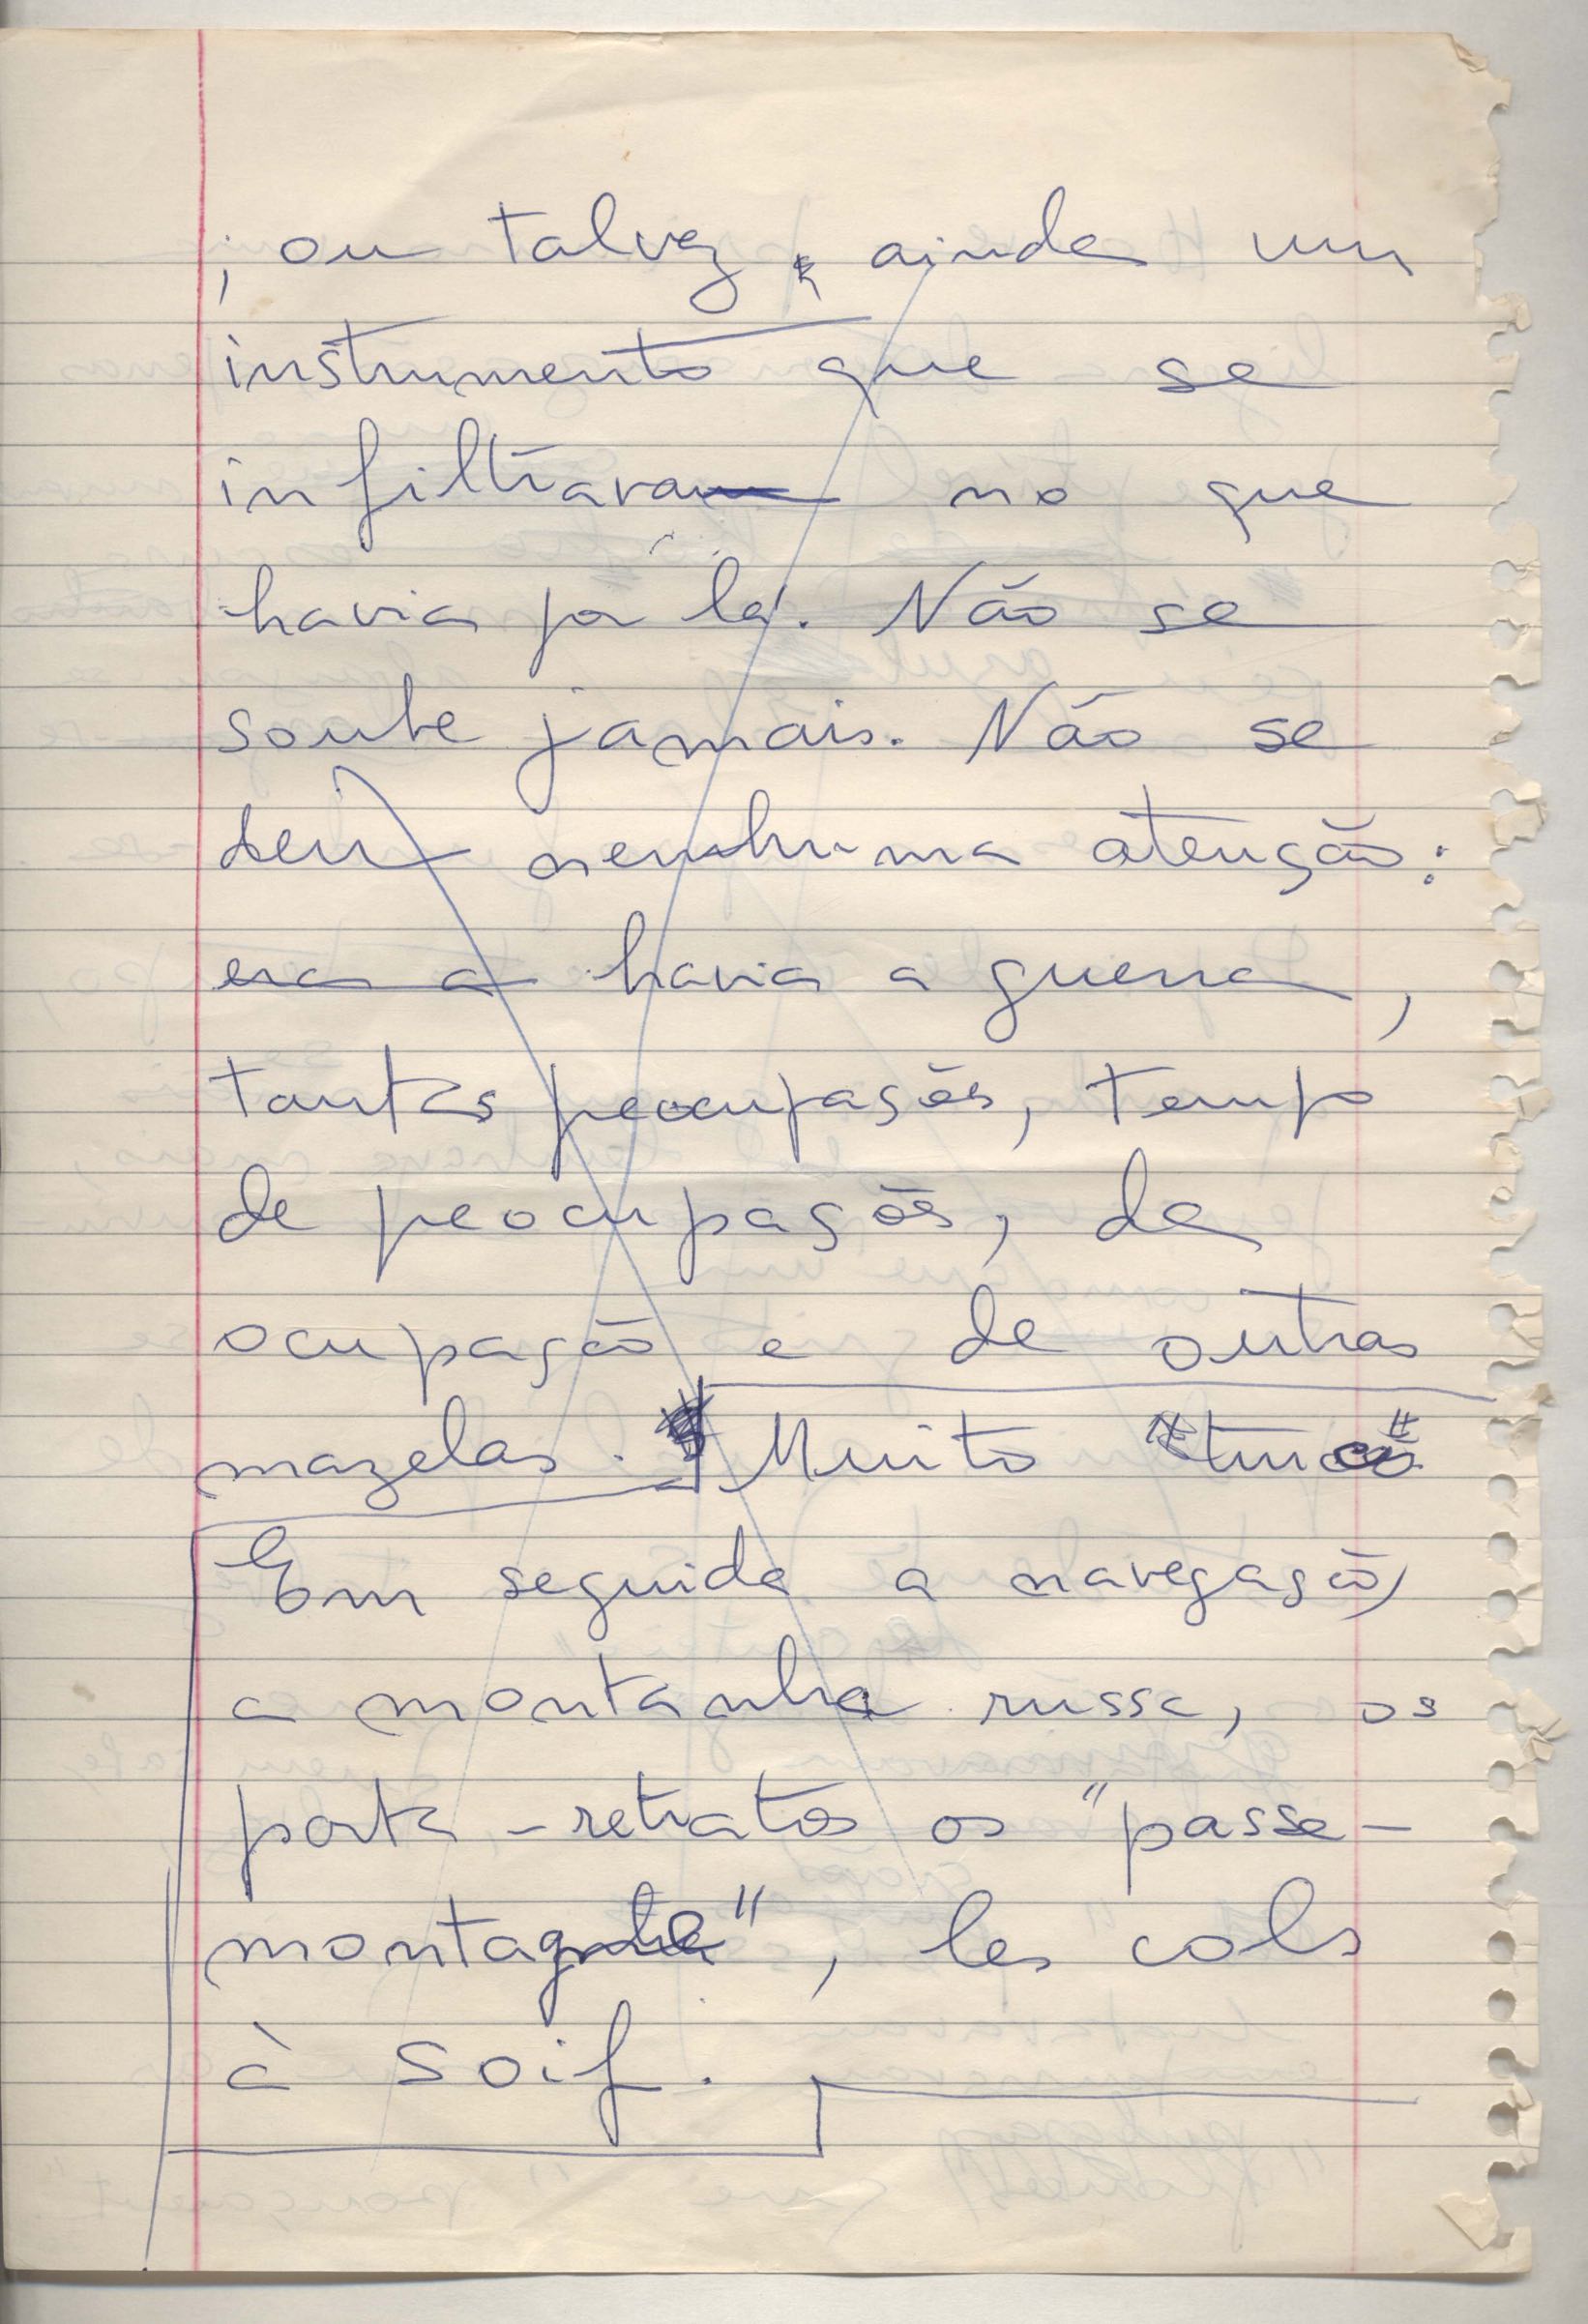 ; ou talvez, ainda um
instrumento que se
infiltrava no que
havia por lá. Não se
soube jamais. Não se
deu nenhuma atenção:
era a havia a guerra,
tantas preocupações, tempo
de preocupações, da
ocupação e de outras
mazelas. Muito
Em seguida a navegação
a montanha russa, os
porta-retratos os "passe-
montagne", les cols
à soif.